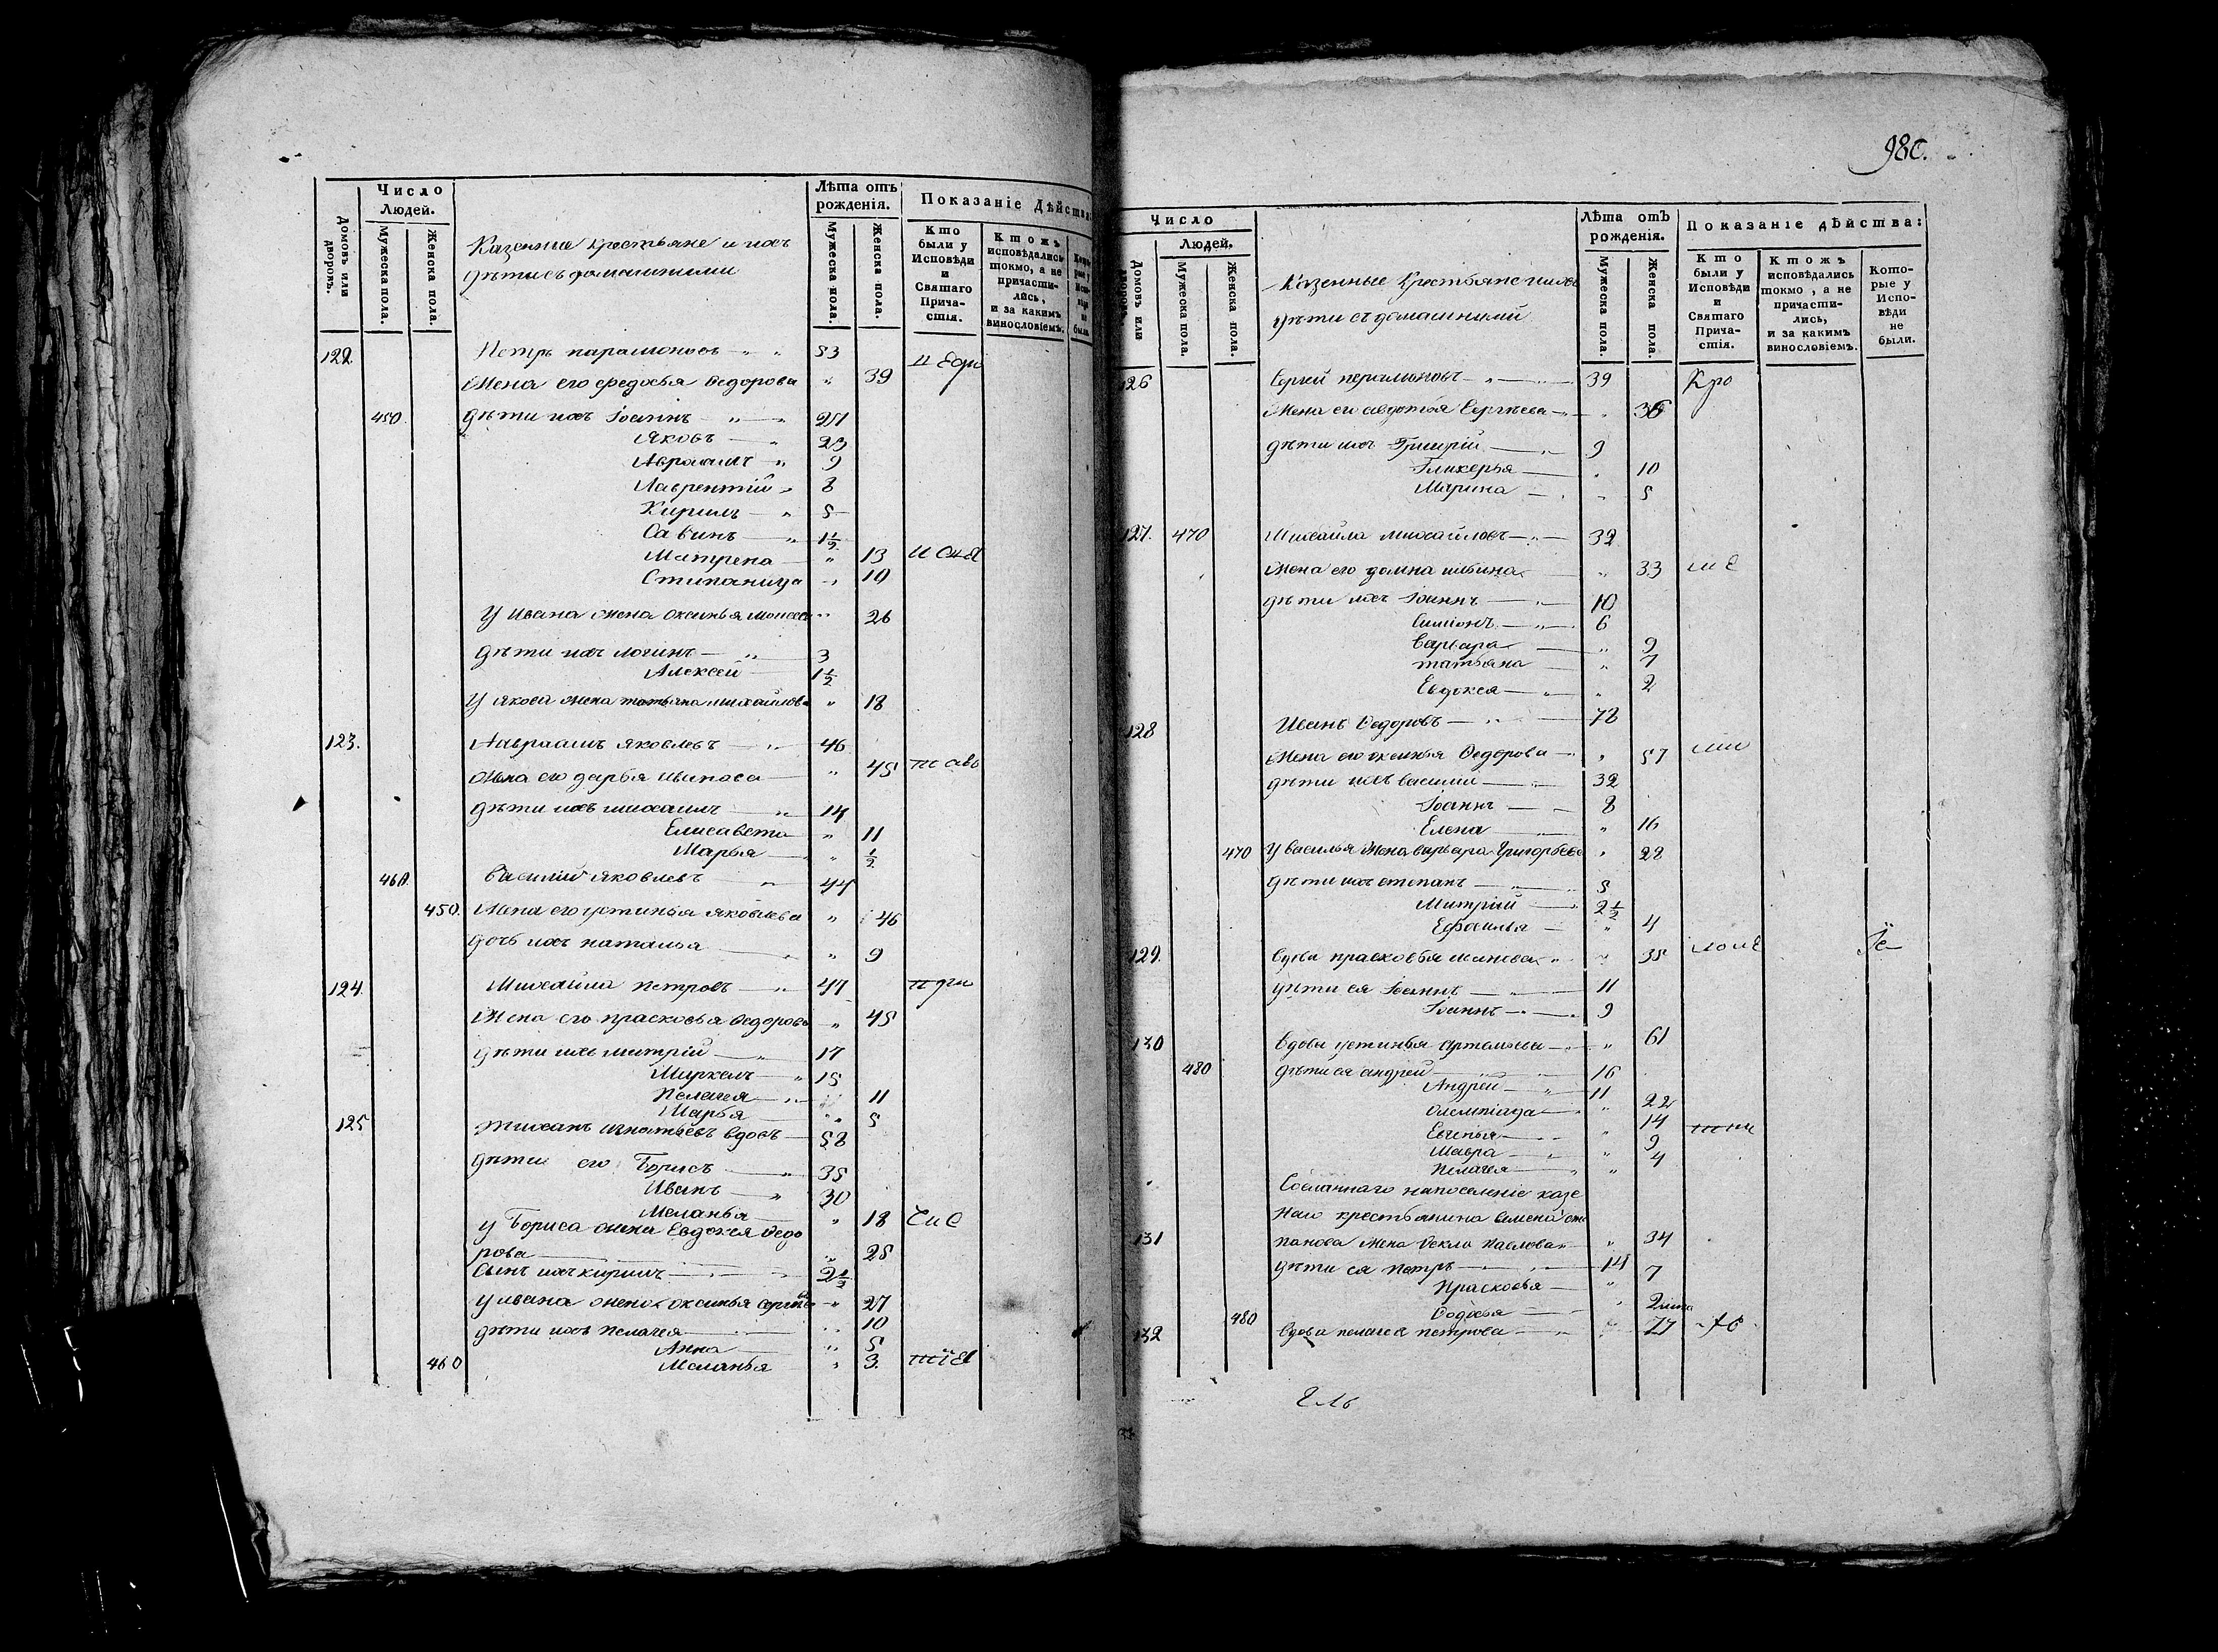 Число Людей.
Лѣта отъ рожденія.
Показаніе Дѣйства:
Домовъ или дворовъ.
Мужеска пола.
Женска пола.
Казенные крестьяне и ихъ
дѣти съ домашними
Мужеска пола.
Женска пола.
Кто были у Исповѣди и Святаго Прича-стія.
Ктожъ исповѣдались токмо, а не причасти-лись, и за какимъ винословіемъ.
122. Петръ парамоновъ 53
Жена его федосья Ѳедорова 39
450 дѣти ихъ Іоаннъ
Яковъ 23
Авраамъ 9
Лаврентій 8
Кирилъ 5
Савинъ 1½
Матрена 13
Стипанида 10
У ивана жена оксинья 26
дѣти ихъ логинъ 3
Алексей 1½
У якова жена татьяна михайлова 18
123. Авраамъ яковлевъ 46
Жена его дарья 45
дѣти ихъ михаилъ 14
Елисавета 11
Марья ½
460. Василій яковлевъ 44
450. Жена его устинья яковлева 46
дочь ихъ наталья 9
124. Михайла петровъ 47
Жена его прасковья Ѳедорова 45
дѣти ихъ митрій 17
Маркелъ 15
Пелагея 11
Марья 5
125 игнатьевъ вдовъ 58
дѣти его Борисъ 35
Иванъ 30
Меланья 18
у Бориса жена Евдокея Ѳедо
рова 28
Сынъ ихъ кирилъ 2½
у ивана жена оксинья 27
дѣти ихъ пелагея 10
Анна 5
460 Меланья 3.
980.
Число Людей.
Лѣта отъ рожденія.
Показаніе дѣйства:
Домовъ или дворовъ.
Мужеска пола.
Женска пола.
Казенные Крестьяне и ихъ
дѣти съ домашними
Мужеска пола.
Женска пола.
Кто были у Исповѣди и Святаго Прича-стія.
Ктожъ исповѣдались токмо, а не причасти-лись, и за какимъ винословіемъ.
Кото-рые у Испо-вѣди не были.
126 Сергей парамоновъ 39
Жена его авдотья Сергѣева 36
дѣти ихъ Григорій 9
Гликерья 10
Марина 5
127. 470 Михайла михайловъ 32
Жена его домна 33
дѣти ихъ Іоаннъ 10
Симіонъ 6
Варвара 9
татьяна 7
Евдокея 2
128 Иванъ Ѳедоровъ 78
Жена его оксинья Ѳедорова 57
дѣти ихъ василій 32
Іоаннъ 8
Елена 16
470 У василья жена варвара Григорьева 28
дѣти ихъ степанъ 5
Митрій 2½
Ефросинья 4
129. вдова прасковья 35
дѣти ея Іоаннъ 11
Іоаннъ 9
130 вдова устинья артемьева 61
480 дѣти ея андрей 16
Андрей 11
Олемпіада 22
Евгинья 14
Мавра 9
Пелагея 4
Сосланнаго напоселеніе казе
наго крестьянина Симена сте
131 панова жена Ѳекла Павлова 34
дѣти ея петръ 14
Прасковья 7
Ѳедосья 2
480
132 вдова пелагея петрова 77